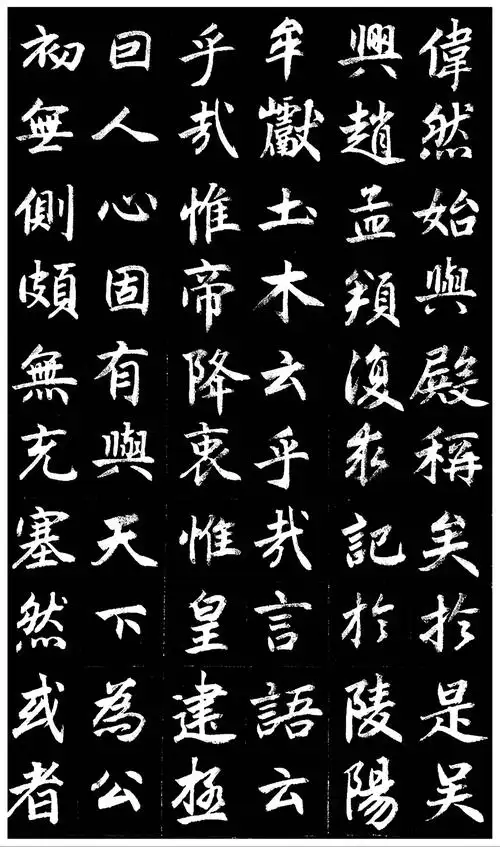 偉然始與殿稱矣於是吴
興趙孟頫復求記於陵陽
牟巘土木云乎哉言語云
乎哉惟帝降衷惟皇建極
囙人心固有與天下為公
初無側頗無充塞然或者